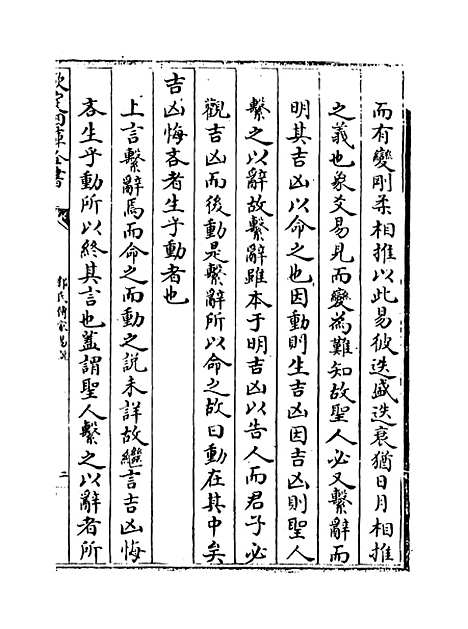 而有變剛柔相推以此易彼迭盛迭衰猶日月相推
之義也象爻易見而變為難知故聖人必又繫辭而
明其吉凶以命之也因動則生吉凶因吉凶則聖人
繫之以辭故繫辭雖本于明吉凶以告人而君子必
觀吉凶而後動是繫辭所以命之故曰動在其中矣
吉凶悔吝者生乎動者也
上言繫辭焉而命之而動之說未詳故繼言吉凶悔
吝生乎動所以終其言也蓋謂聖人繫之以辭者所
欽定四庫全書
郭氏傳家易說
二